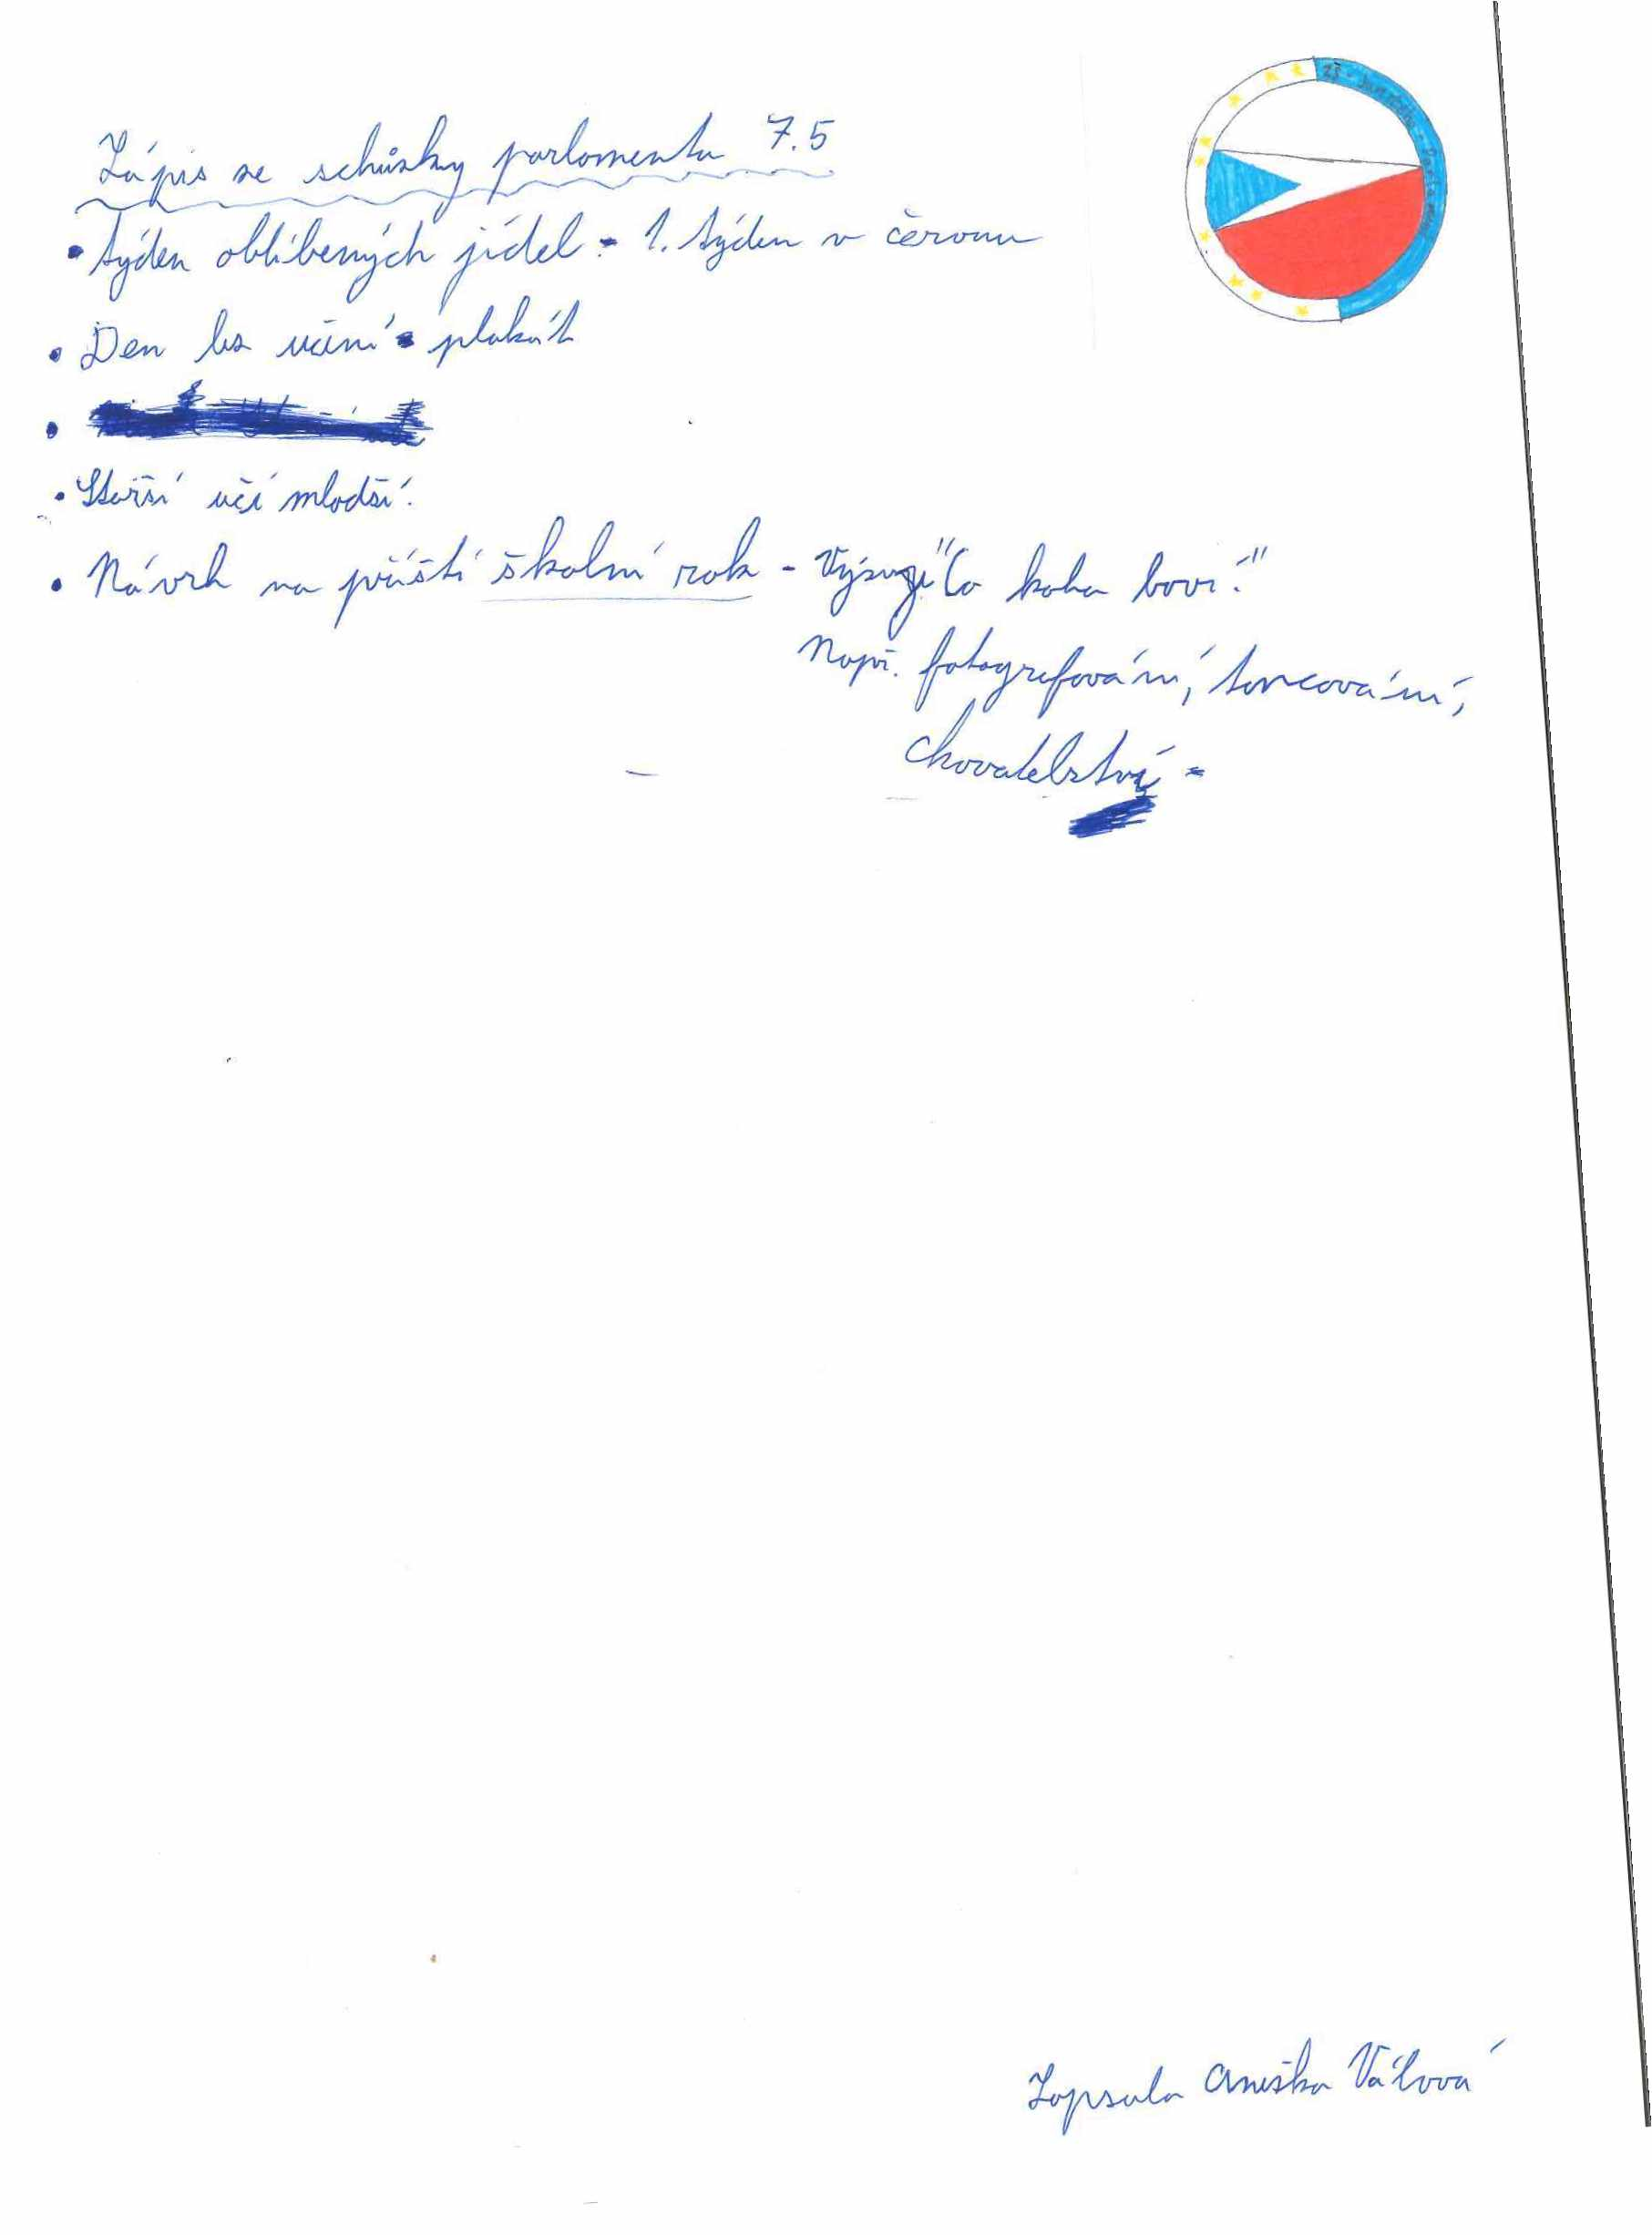 Zápis ze schůzky parlamentu 7.5
• týden oblíbených jídel - 1. týden v červnu
• Den bez učení - plakát
•
• Starší učí mladší.
• Návrh na příští školní rok - Výzvy "Co koho baví."
Např. fotografování, tancování,
chovatelství -
ZŠ
Zapsala Anežka Válová